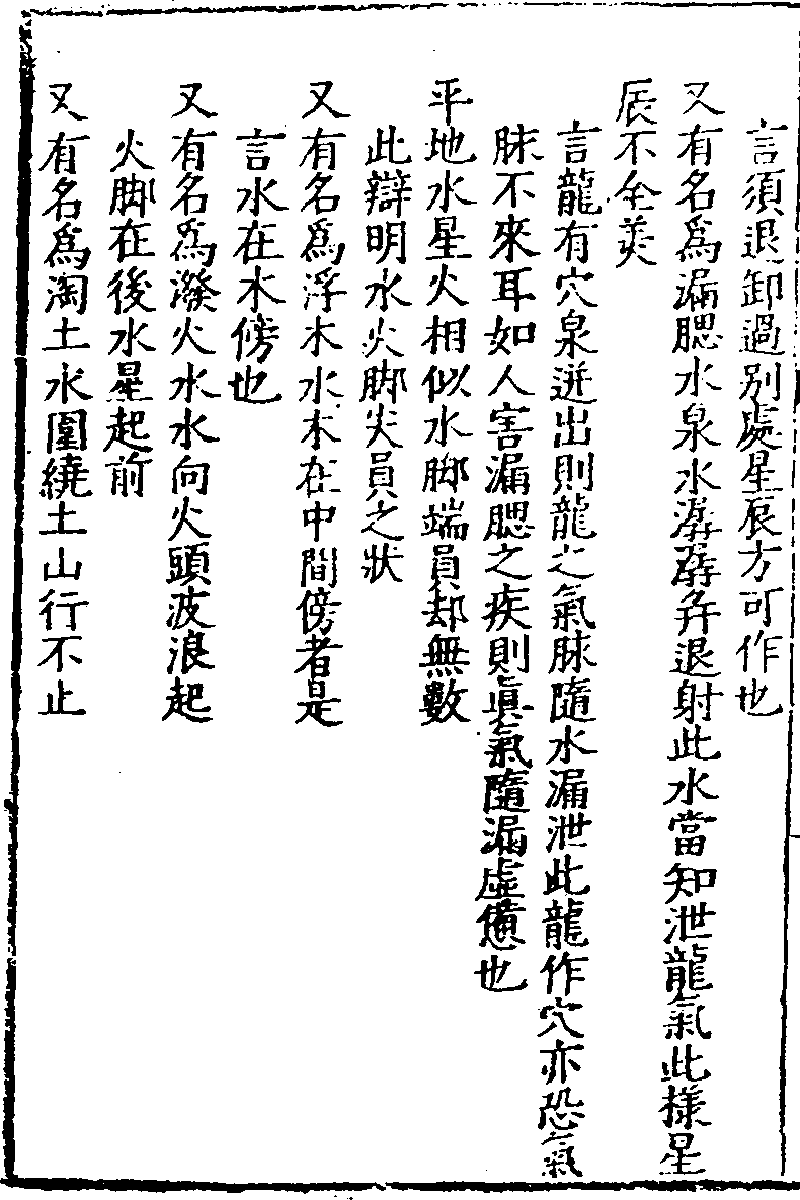 言須退卸過別處星辰方可作也
又有名爲漏腮水泉水潺潺弄退射此水當知泄龍氣此樣星
辰不全美
言龍有穴泉迸出則龍之氣脉隨水漏泄此龍作穴亦恐氣
脉不來耳如人害漏腮之疾則眞氣隨漏虛憊也
平地水星火相似水脚端員却無數
此辯明水火脚尖員之狀
又有名爲浮木水木在中間傍者是
言水在木傍也
又有名爲潑火水水向火頭波浪起
火脚在後水星起前
又有名爲淘土水圍繞土山行不止